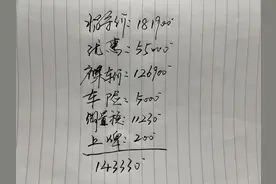 指导价:181900
优惠:55000
裸车价:126900
车险:5000
购置税:11230
上牌:200
143330